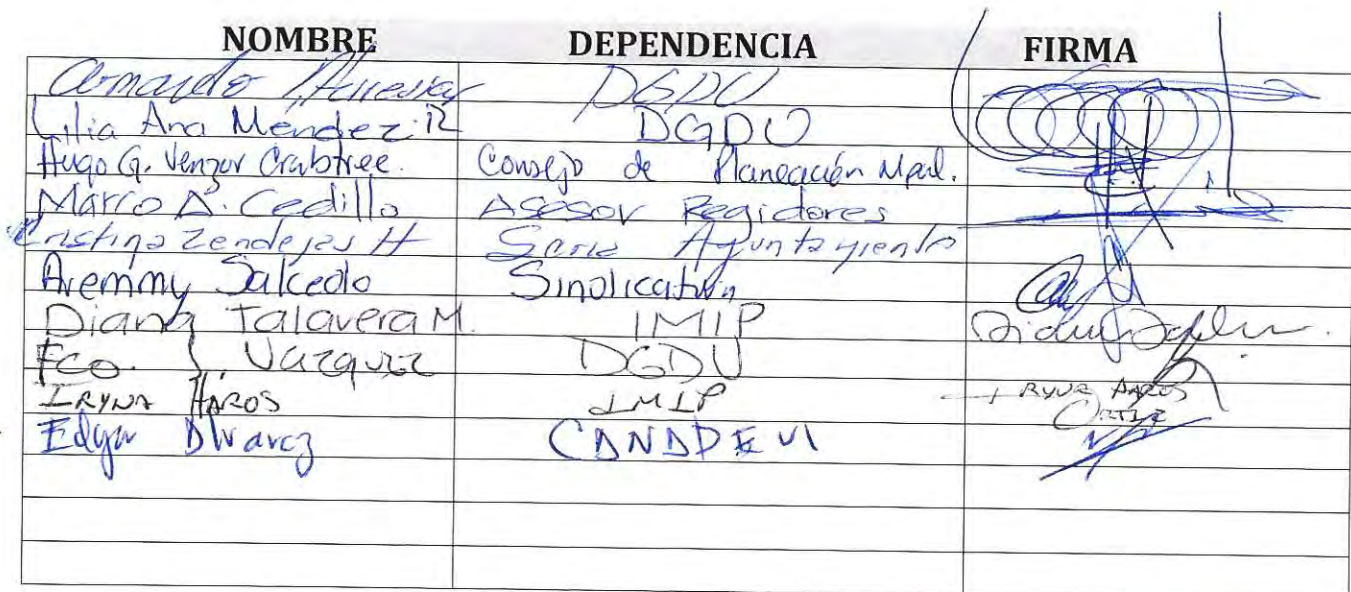 NOMBRE DEPENDENCIA FIRMA
Armando Herrera DGDU
Lilia Ana Mendez R DGDU
Hugo G. Venzor Crabtree. Consejo de Planeación Mpal.
Marco A. Cedillo Asesor Regidores
Cristina Zendejas H Sria Ayuntamiento
Aremmy Salcedo Sindicatura
Diana Talavera M. IMIP
Fco. J. Vazquez DGDU
IRYNA HAROS IMIP IRYNA HAROS
ORTIZ
Edgar Alvarez CANADEVI